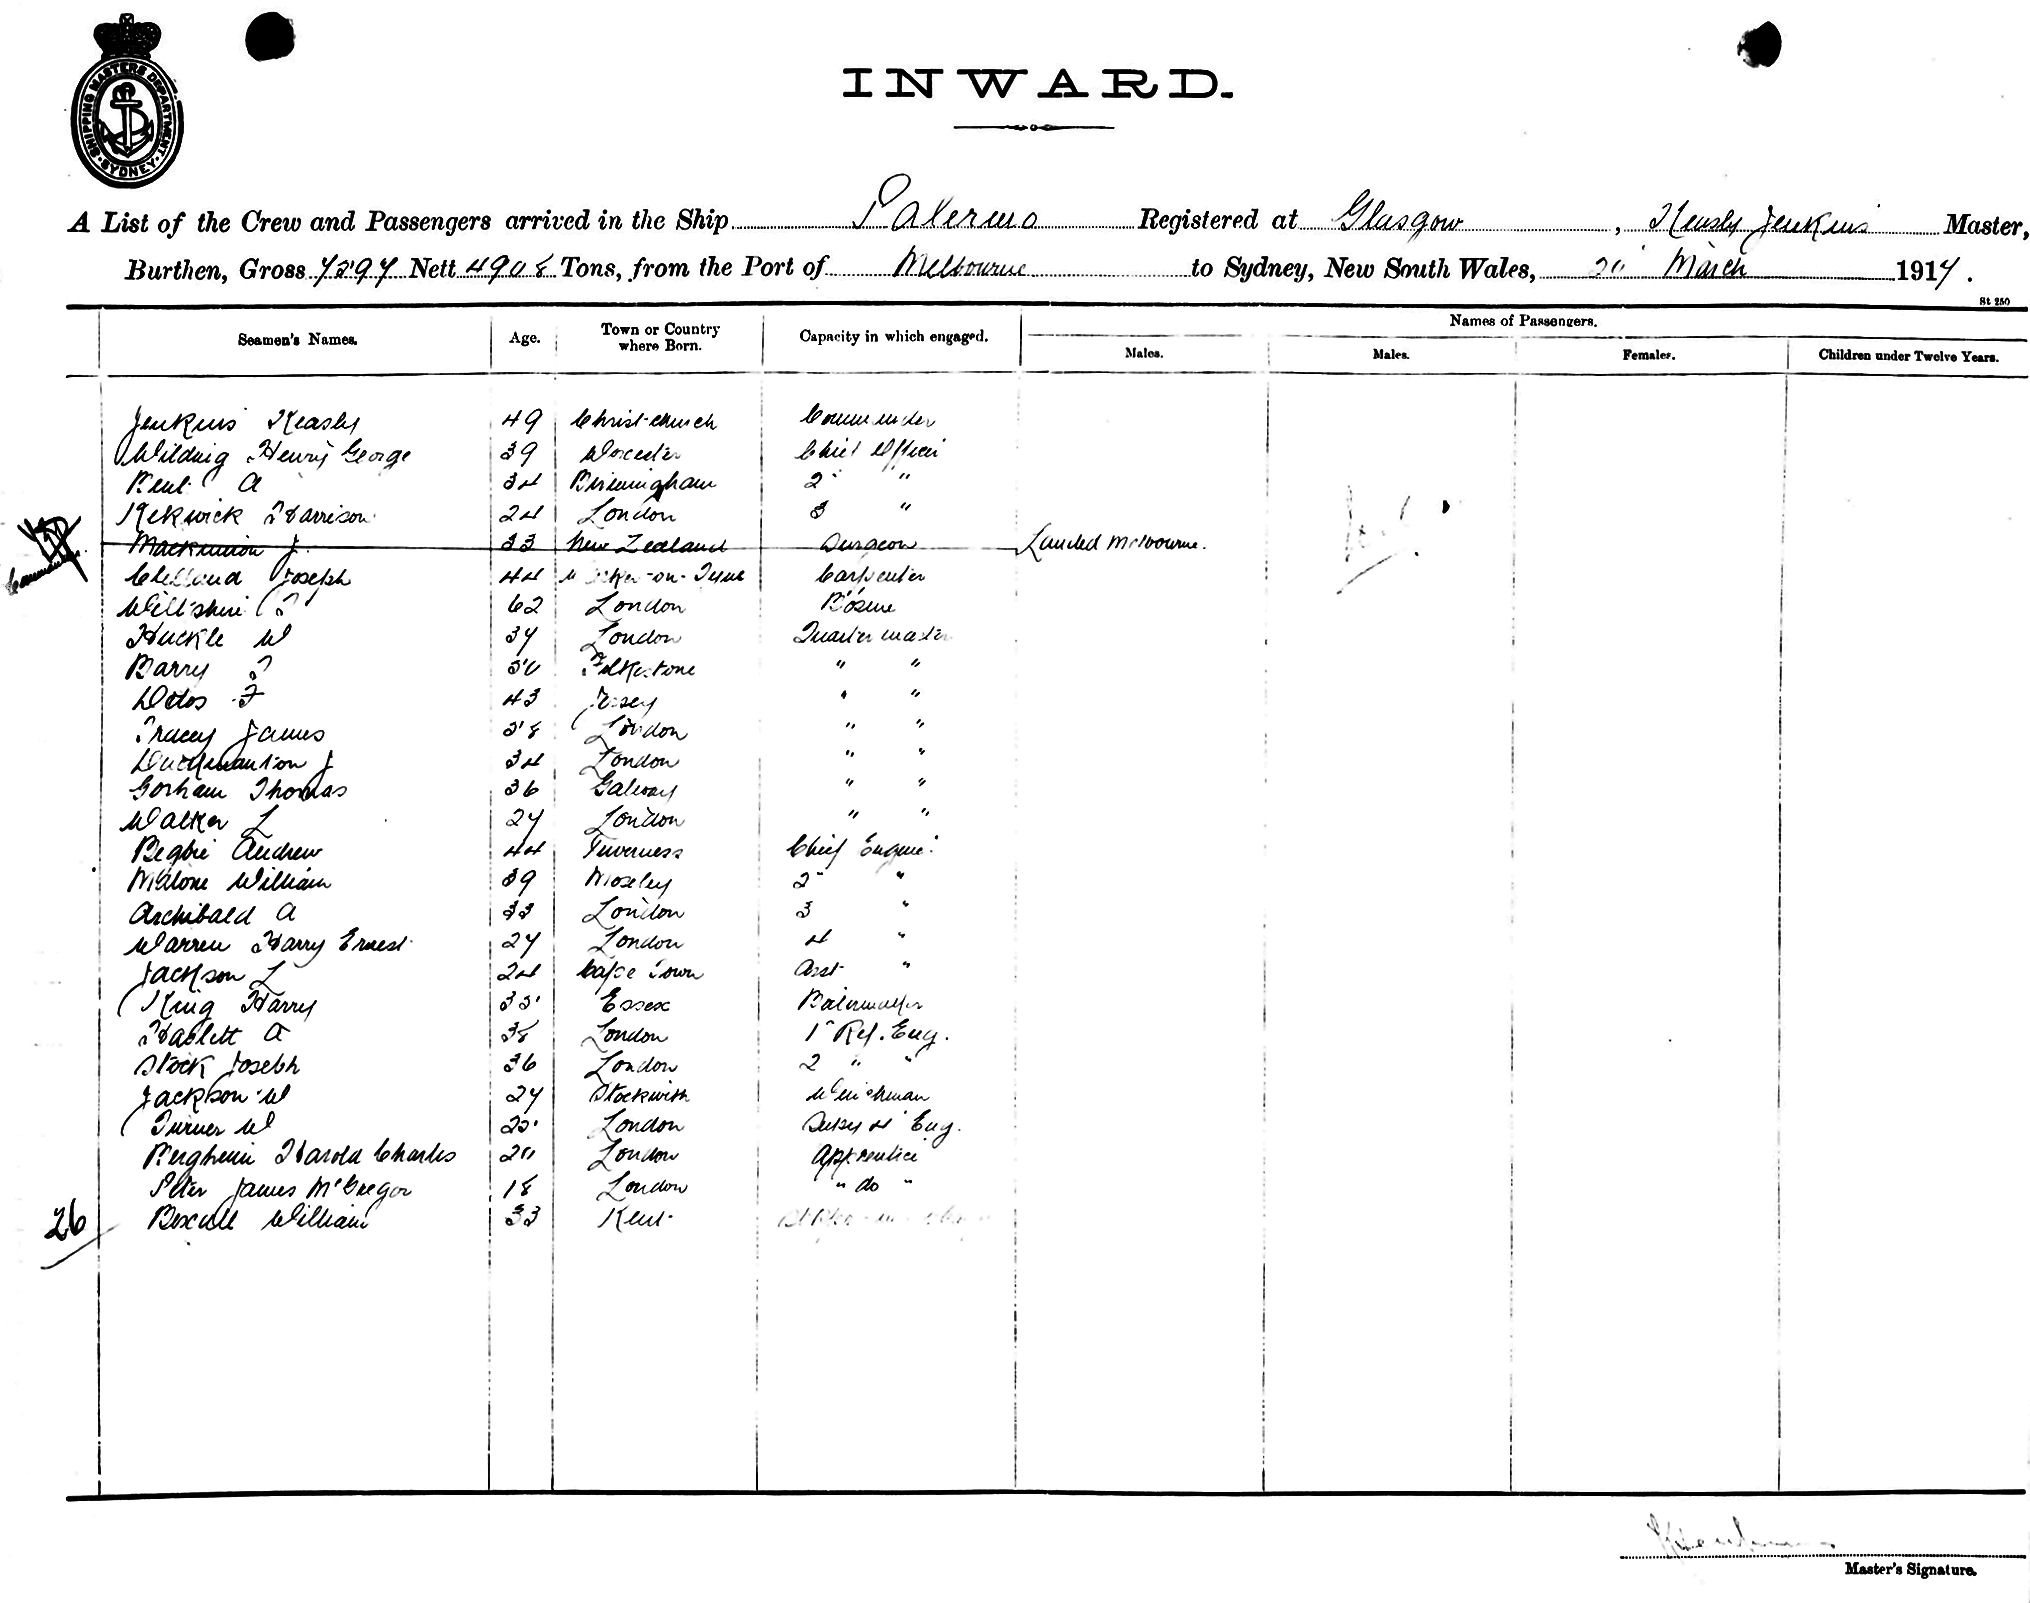 SHIPPING MASTERS DEPARTMENT · SYDNEY ·
INWARD.
A List of the Crew and Passengers arrived in the Ship Palermo Registered at Glasgow, Jenkins Master,
Burthen, Gross Nett 4908 Tons, from the Port of Melbourne to Sydney, New South Wales, March 1914.
St 250
Seamen's Names. Age. Town or Country where Born. Capacity in which engaged. Names of Passengers.
Males. Males. Females. Children under Twelve Years.
Jenkins 49 Christchurch Commander
Wilding Henry George 39 Worcester Chief Officer
Kent A 34 Birmingham 2 "
Kekwick Harrison 24 London 3 "
Mackinnon J. 33 New Zealand Surgeon Landed Melbourne.
Clelland Joseph 44 -on-Tyne Carpenter
Wiltshire 62 London Bosun
Huckle W 37 London Quartermaster
Barry Folkestone " "
F 43 Jersey " "
Tracey James London " "
J 34 London " "
Gorham Thomas 36 Galway " "
Walker L 27 London " "
Begbie Andrew 44 Inverness Chief Engine
Malone William 39 Moseley 2 "
Archibald A 33 London 3 "
Warren Harry Ernest 27 London 4 "
Jackson L 24 Cape Town Asst "
King Harry Essex Boilermaker
Haslett A 38 London 1 Ref. Eng.
Stock Joseph 36 London 2 " "
Jackson W 27 Stockwith Winchman
Turner W London 4 Eng.
Harold Charles London Apprentice
Peter James McGregor 18 London " do "
26 Boxall William 33 Kent
Master's Signature.